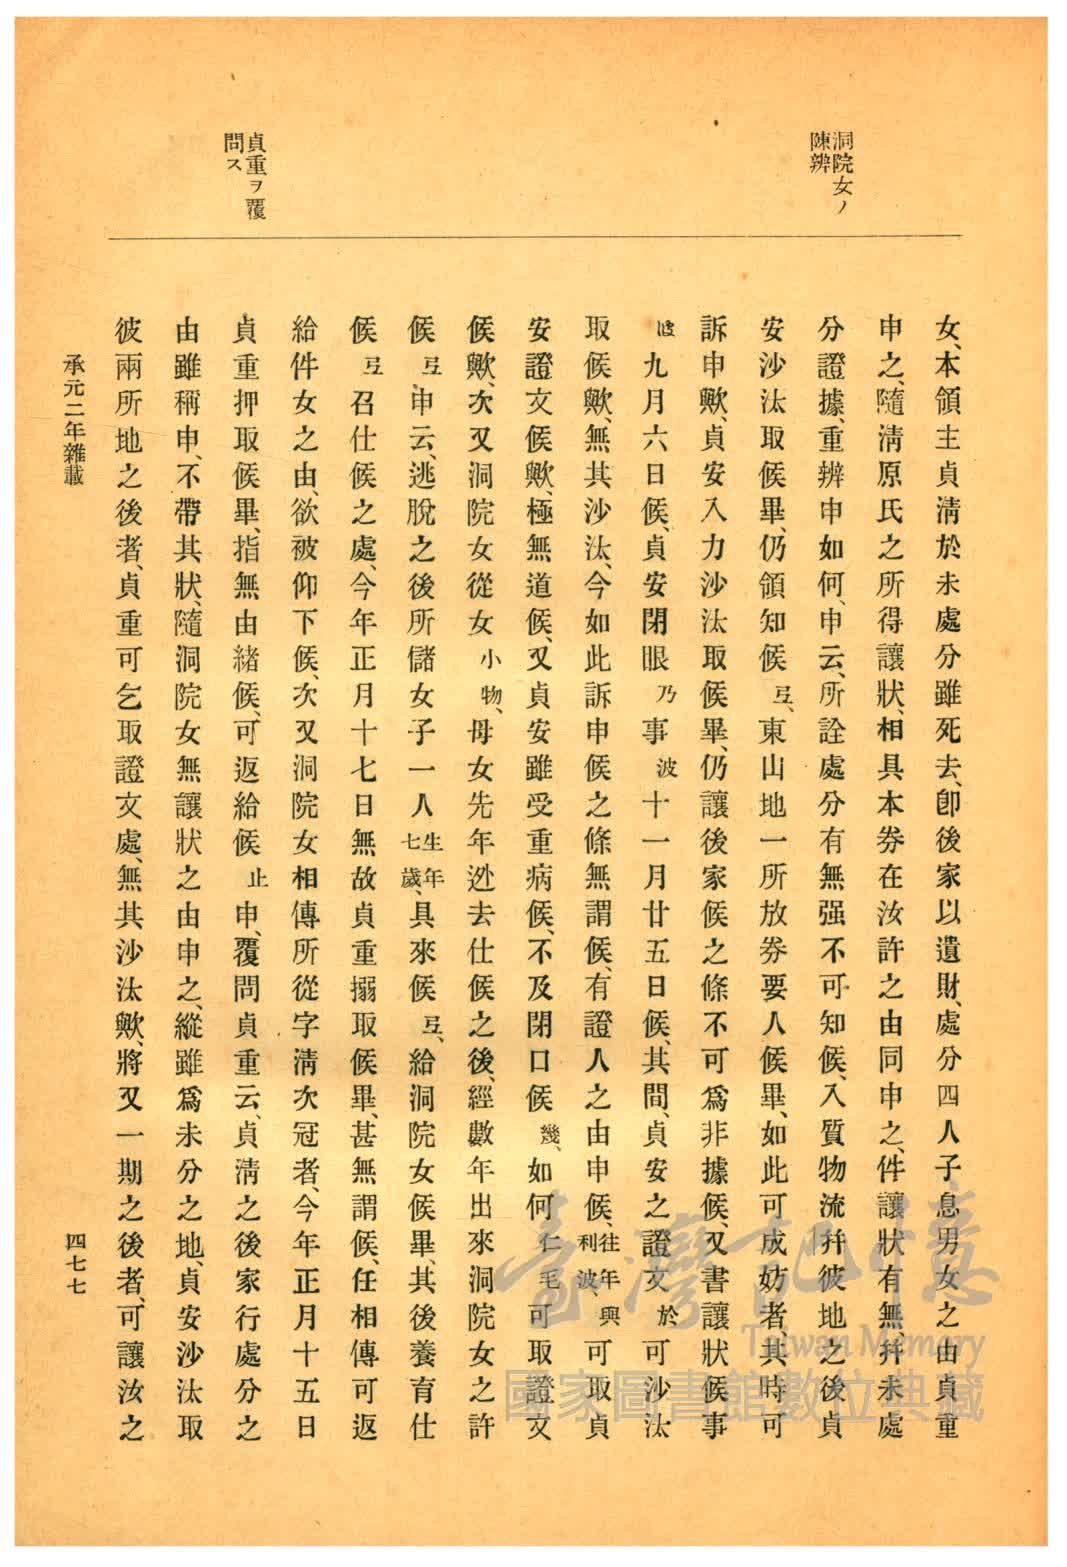 洞院女ノ
陳辨
貞重ヲ覆
問ス
女、本領主貞淸於未處分雖死去、卽後家以遺財、處分四人子息男女之由貞重
申之、隨淸原氏之所得讓狀、相具本券在汝許之由同申之、件讓狀有無、幷未處
分證據、重辨申如何、申云、所詮處分有無强不可知候、入質物流幷彼地之後貞
安沙汰取候畢、仍領知候
弖、
東山地一所放券要人候畢、如此可成妨者其時可
訴申歟、貞安入力沙汰取候畢、仍讓後家候之條不可爲非據候、又書讓狀候事
波
九月六日候、貞安閉眼
乃
事
波
十一月廿五日候、其間、貞安之證文
於
可沙汰
取候歟、無其沙汰、今如此訴申候之條無謂候、有證人之由申候、
往年與
利波、
可取貞
安證文候歟、極無道候、又貞安雖受重病候、不及閉口候
幾、
如何
仁毛
可取證文
候歟、次又洞院女從女
小物、
母女先年迯去仕候之後、經數年出來洞院女之許
候
弖
申云、逃脫之後所儲女子一人
生年
七歲、
具來候
弖、
給洞院女候畢、其後養育仕
候
弖
召仕候之處、今年正月十七日無故貞重搦取候畢、甚無謂候、任相傳可返
給件女之由、欲被仰下候、次又洞院女相傳所從字淸次冠者、今年正月十五日
貞重押取候畢、指無由緖候、可返給候
止
申、覆問貞重云、貞淸之後家行處分之
由雖稱申、不帶其狀、隨洞院女無讓狀之由申之、縱雖爲未分之地、貞安沙汰取
彼兩所地之後者、貞重可乞取證文處、無其沙汰歟、將又一期之後者、可讓汝之
承元二年雜載
四七七
臺灣記憶
Taiwan Memory
國家圖書館數位典藏